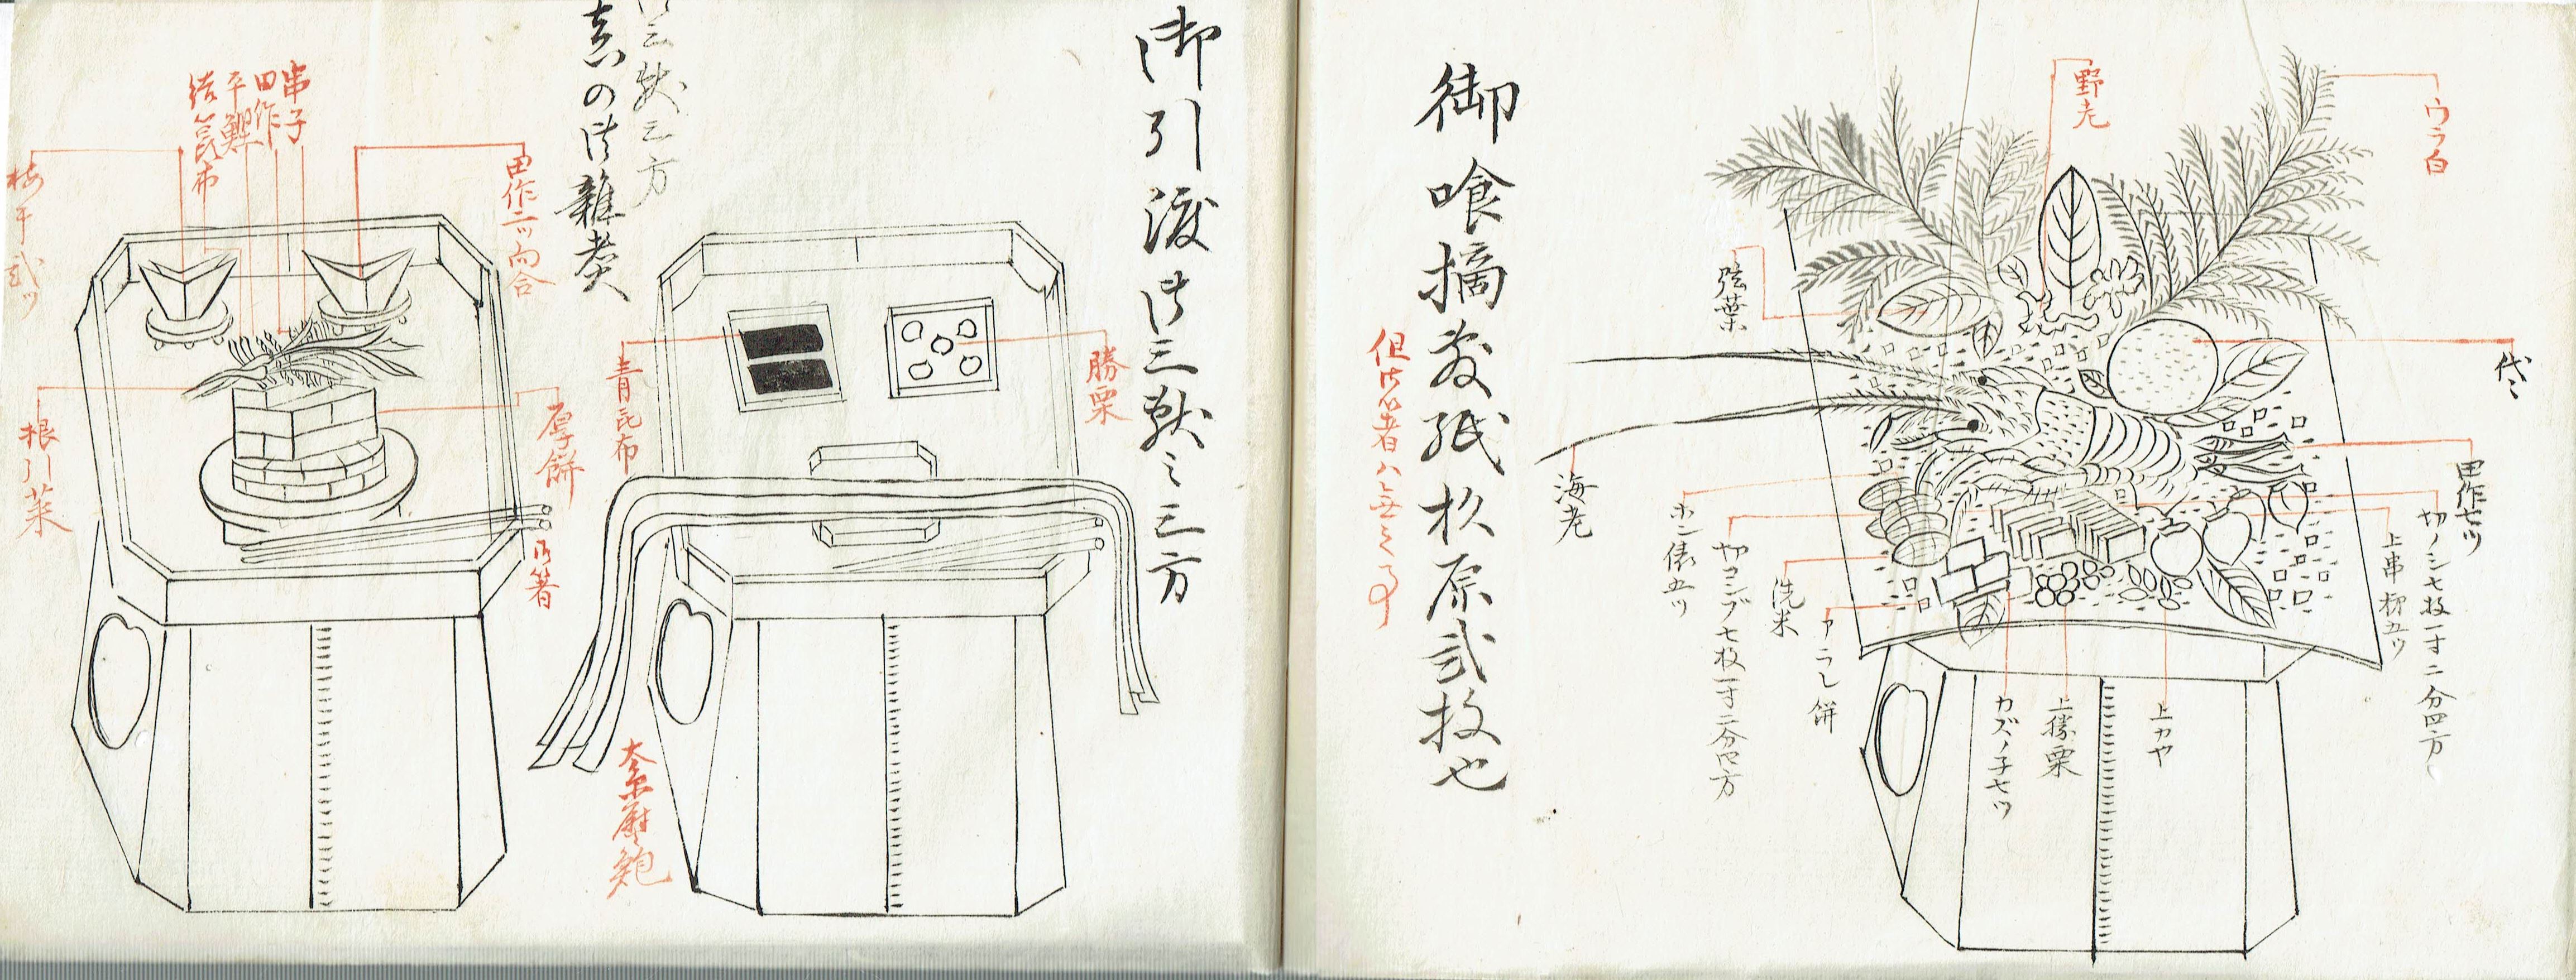 ウラ白
野老
弦葉
代〻
海老
田作七ツ
切ノシ七枚一寸二分四方
上串柿五ツ
ホン俵五ツ
切コンブ七枚一寸二分四方
洗米
アラレ餅
カズノ子七ツ
上搗栗
上カヤ
御喰摘敷紙杉原弐枚也
但御箸ハ無之事
御引渡御三献之三方
勝栗
青昆布
御三献三方
真の御雑煮
田作二ツ向合
串子
田作
平鰹
結昆布
梅干弐ツ
厚餅
根引菜
御箸